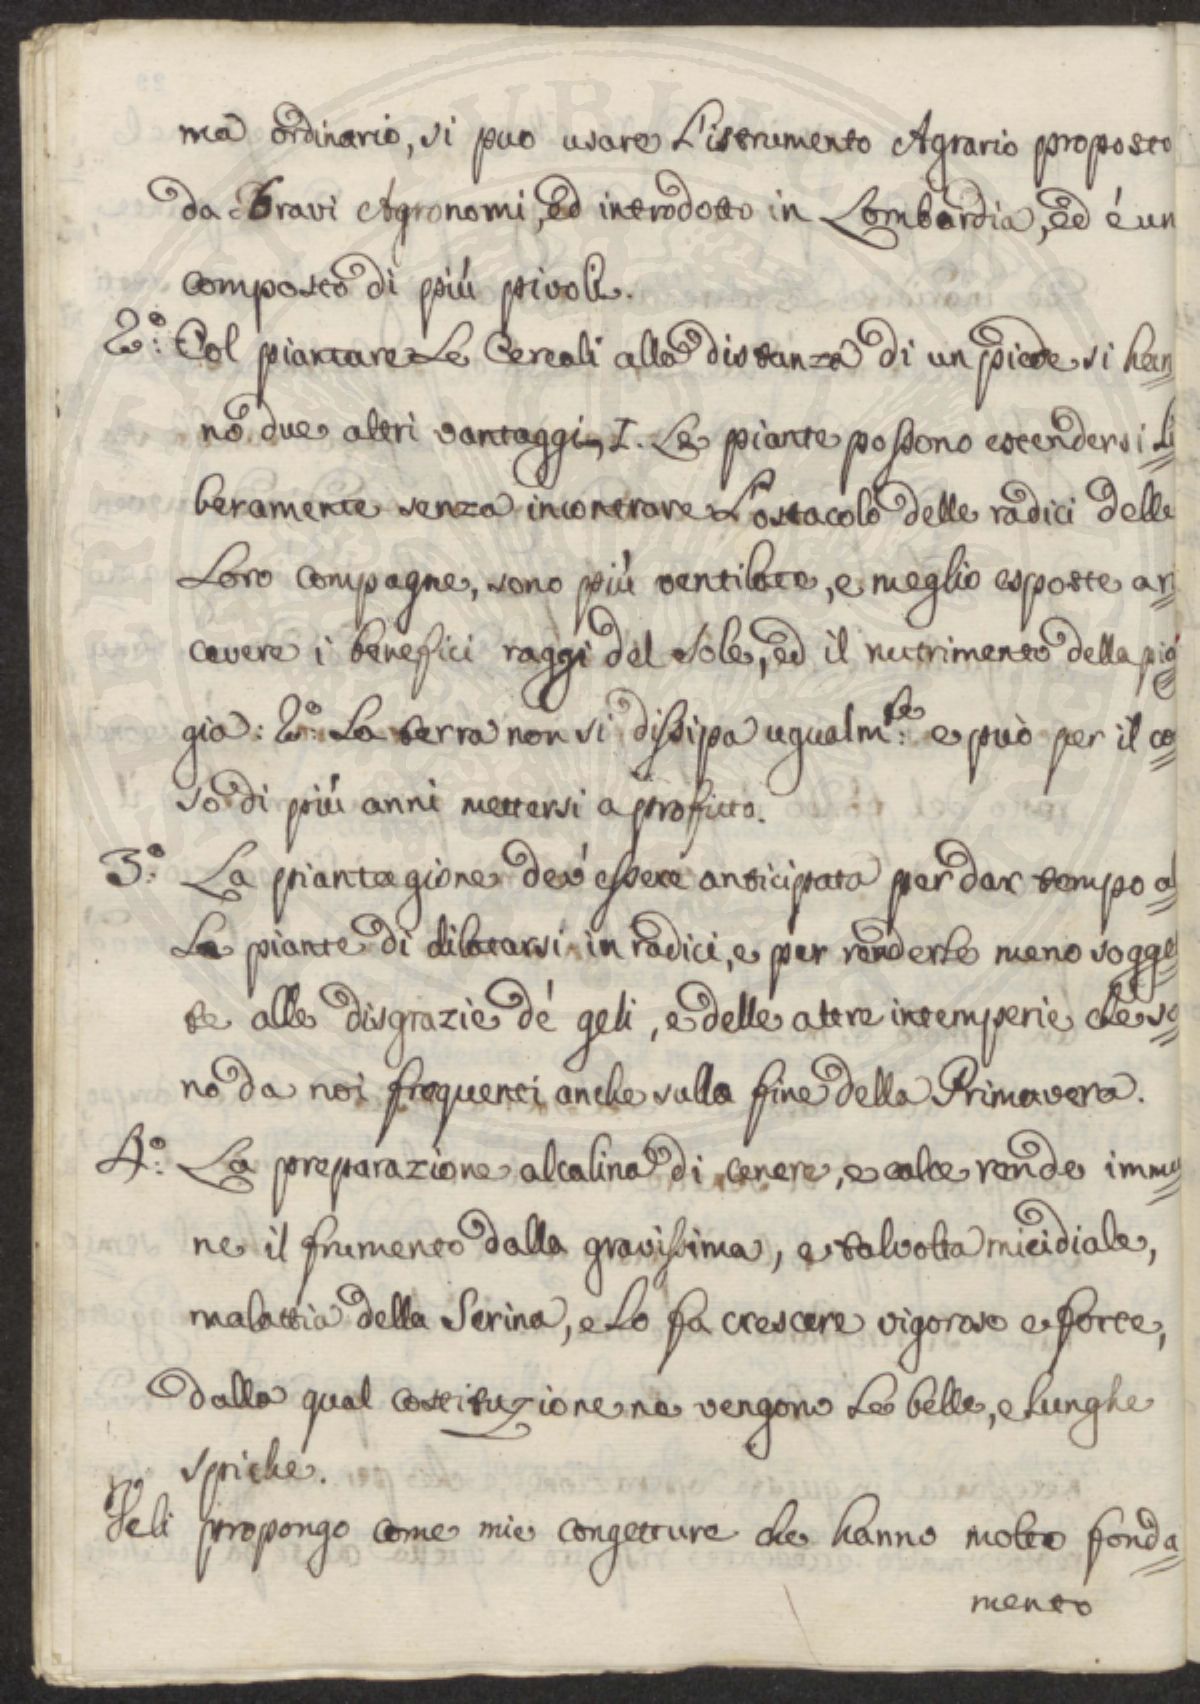 ma ordinario, si puo usare L'istrumento Agrario proposto
da Bravi Agronomi, ed introdotto in Lombardia, ed é un
composto di piú pivoli.
2.º Col piantare Le Cereali alla distanza di un piede si han=
no due altri vantaggi, I. Le piante possono estendersi Li=
beramente senza incontrare L'ostacolo delle radici delle
Loro compagne, sono piú ventilate, e meglio esposte a ri=
cevere i benefici raggi del sole, ed il nutrimento della piog=
gia: 2.º La terra non si dissipa ugualm.te e può per il co=
so di piú anni mettersi a profitto.
3.º La piantagione dev'essere anticipata per dar tempo a=
Le piante di dilatarsi in radici, e per renderle meno sogget=
te alle disgrazie de' geli, e delle altre intemperie che so=
no da noi frequenti anche sulla fine della Primavera.
4.º La preparazione alcalina di cenere, e calce rende immu=
ne il frumento dalla gravissima, e talvolta micidiale,
malattia della Serina, e Lo fa crescere vigoroso e forte,
dalla qual costituzione ne vengono Le belle, e Lunghe
spiche.
Veli propongo come mie congetture che hanno molto fonda=
mento